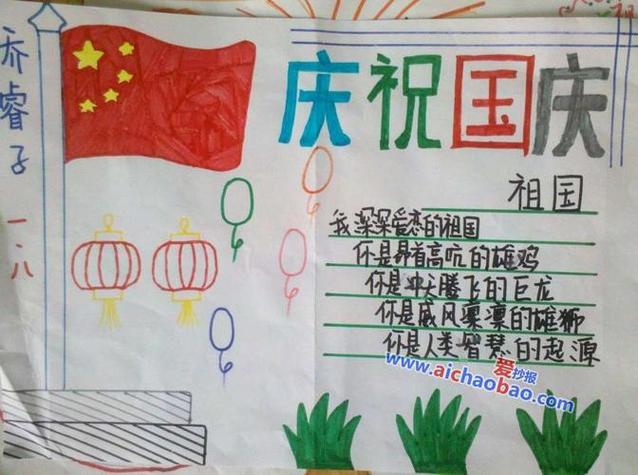 乔睿子
一.八
庆祝国庆
祖国
我深深爱恋的祖国
你是昂首高吭的雄鸡
你是冲天腾飞的巨龙
你是威风凛凛的雄狮
你是人类智慧的起源
爱抄报
www.aichaobao.com